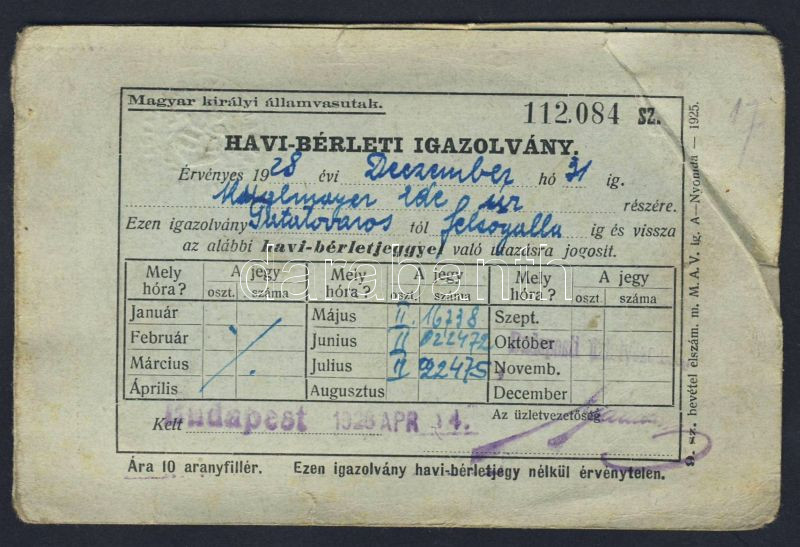 Magyar királyi államvasutak.
112.084 sz.
17
HAVI-BÉRLETI IGAZOLVÁNY.
Érvényes 1928 évi Deczember hó 31 ig.
Ede úr részére.
Ezen igazolvány tól Felsőgalla ig és vissza
az alábbi havi-bérletjeggyel való utazásra jogosit.
Mely hóra? A jegy oszt. száma Mely hóra? A jegy oszt. száma Mely hóra? A jegy oszt. száma
Január Május II. 16738 Szept.
Február Junius II 022472 Október
Március Julius II 922475 Novemb.
Április Augusztus December
Kelt Budapest 1928 APR 14.
Az üzletvezetőség
Ára 10 aranyfillér. Ezen igazolvány havi-bérletjegy nélkül érvénytelen.
9. sz. bevétel elszám. m. M. A. V. ig. A—Nyomda — 1925.
darabanth